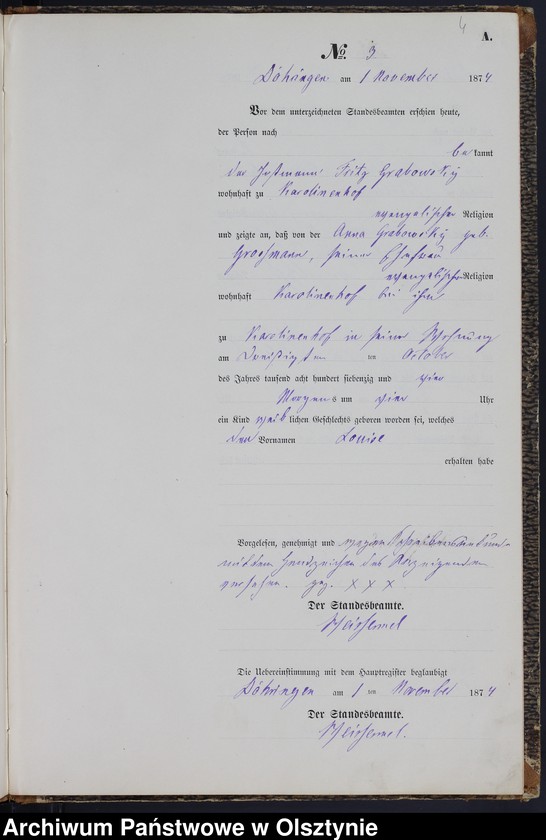 4
A.
№ 3
Döhringen am 1 November 1874
Vor dem unterzeichneten Standesbeamten erschien heute,
der Person nach
bekannt
der Instmann Fritz Grabowsky
wohnhaft zu Karolinenhof
evangelischer Religion
und zeigte an, daß von der Anna Grabowsky geb.
Grossmann, seiner Ehefrau
evangelischer Religion
wohnhaft Karolinenhof bei ihm
zu Karolinenhof in seiner Wohnung
am dreißigten ten October
des Jahres tausend acht hundert siebenzig und vier
Morgens um vier Uhr
ein Kind weiblichen Geschlechts geboren worden sei, welches
den Vornamen Louise
erhalten habe
Vorgelesen, genehmigt und wegen
mit dem Handzeichen des Anzeigenden
versehen. gez. X X X
Der Standesbeamte.
Die Uebereinstimmung mit dem Hauptregister beglaubigt
Döhringen am 1 ten November 1874
Der Standesbeamte.
Archiwum Państwowe w Olsztynie